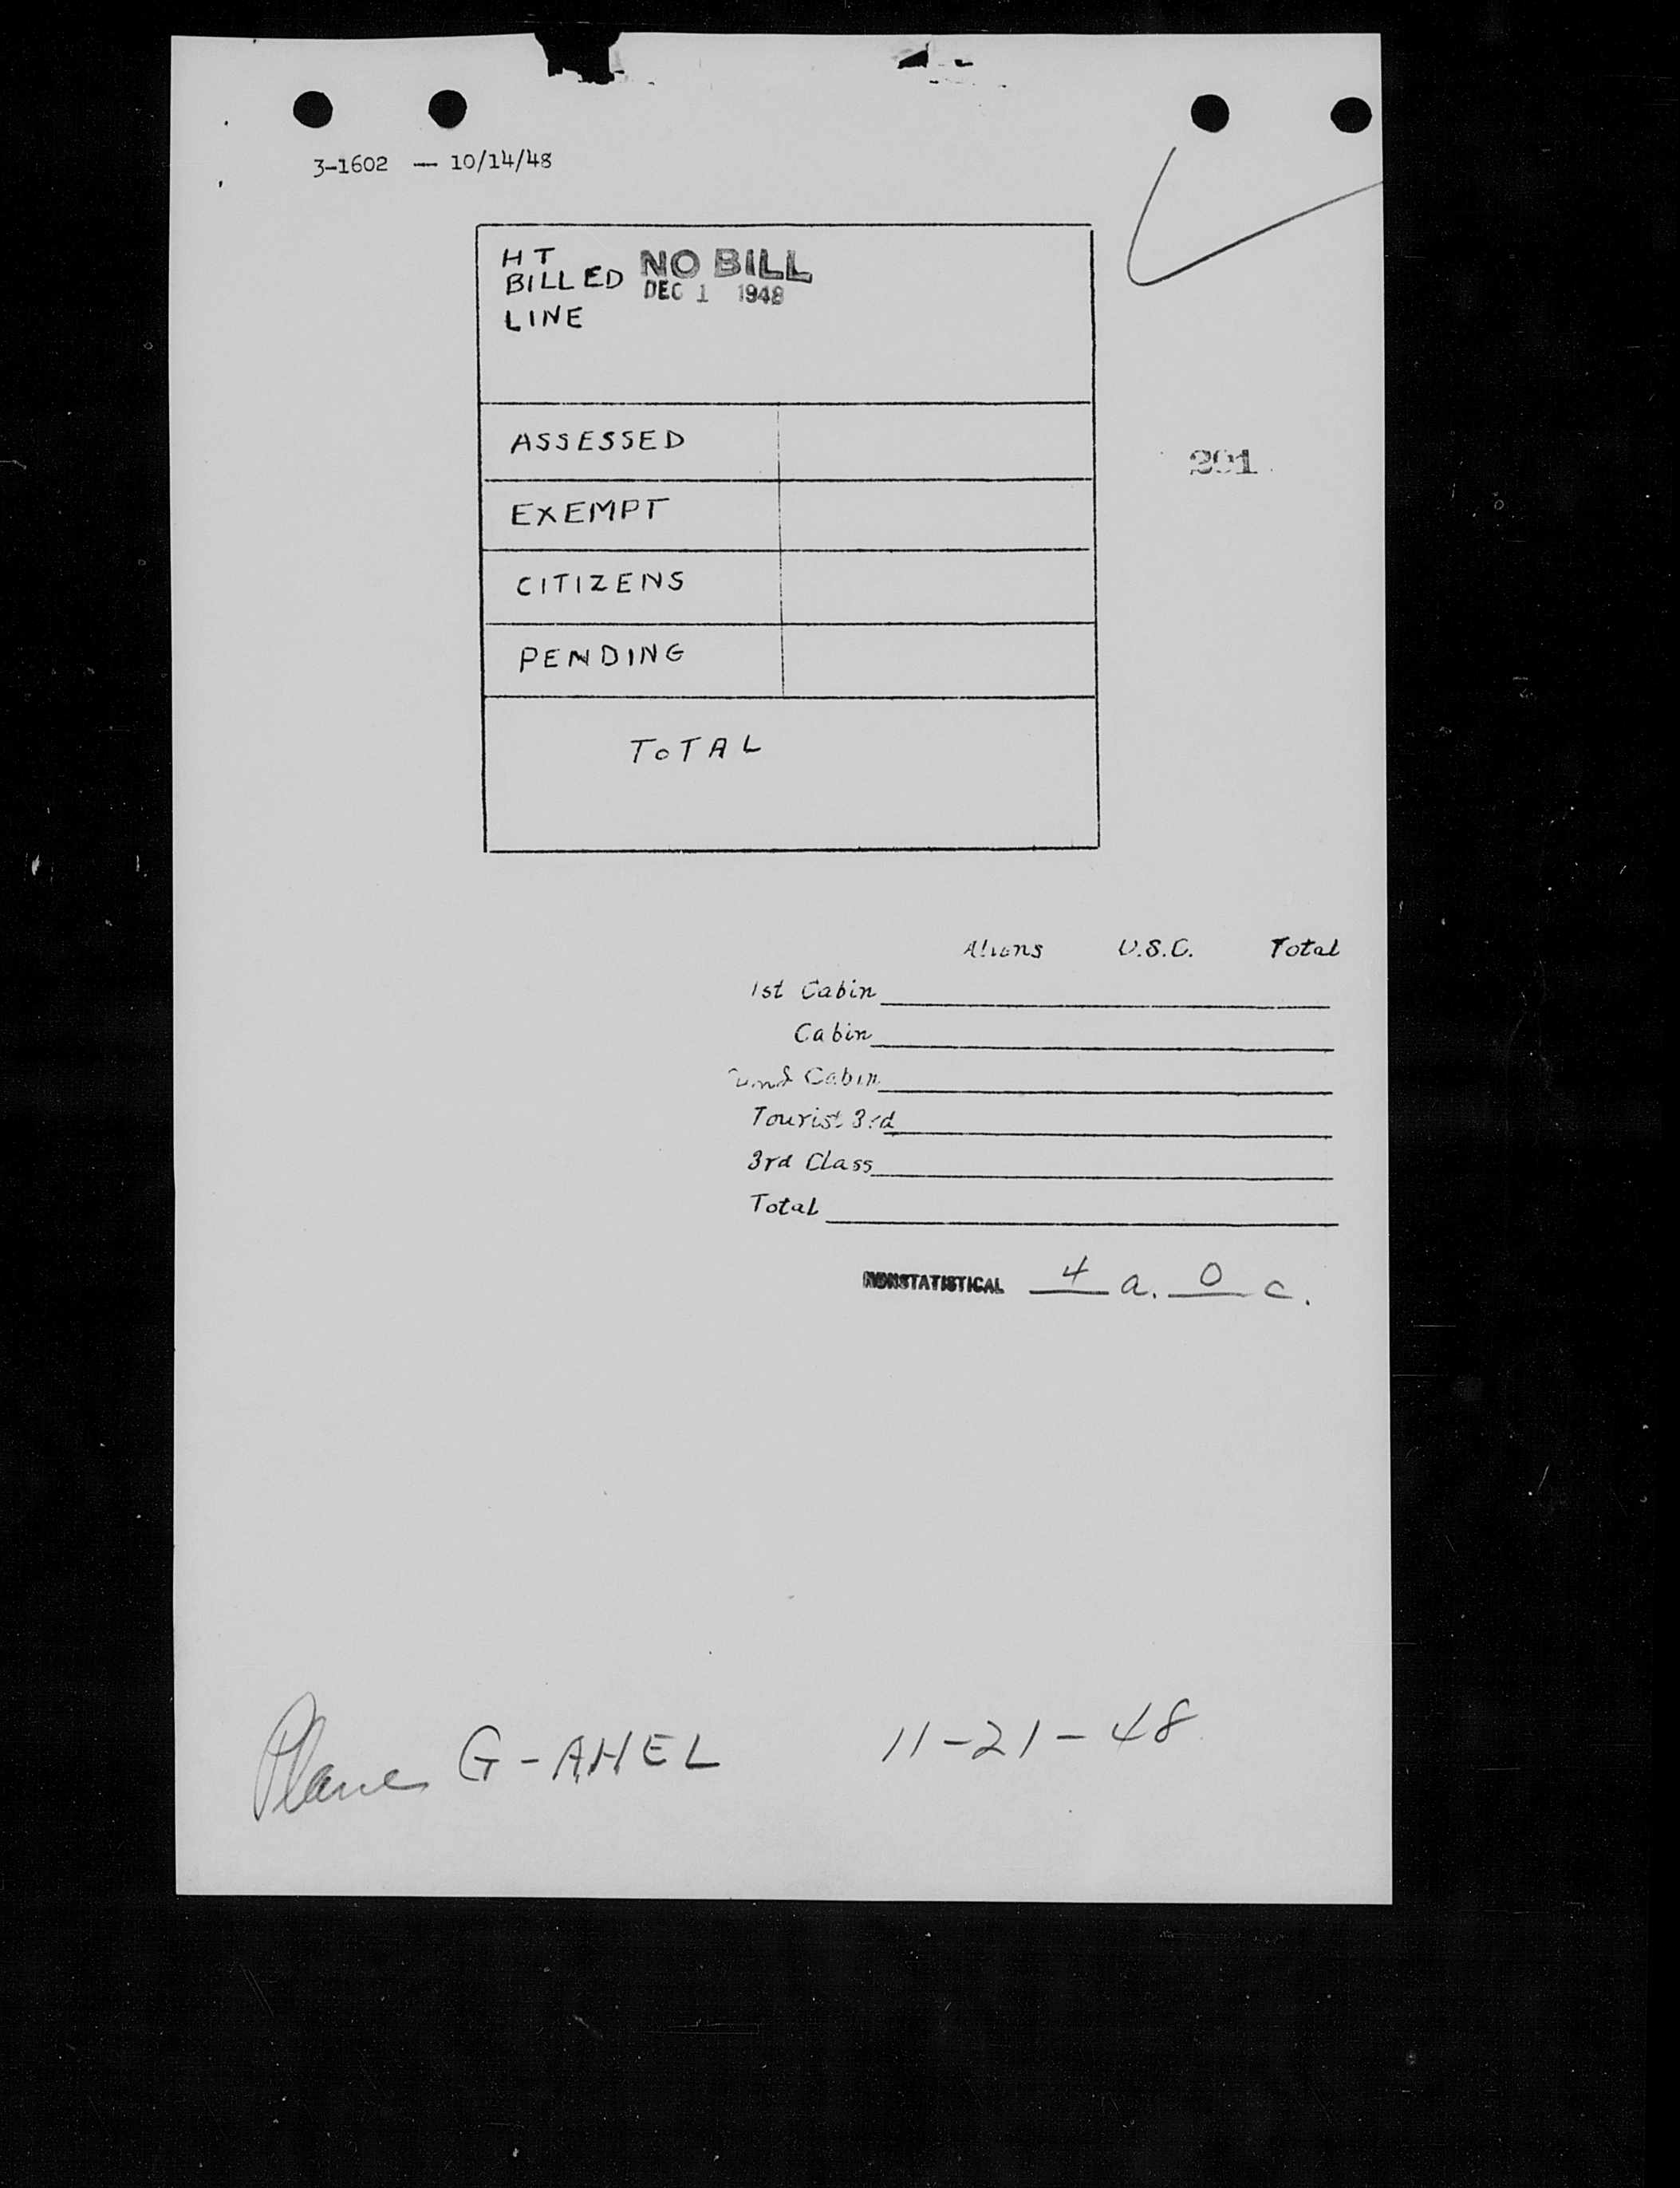 3-1602 — 10/14/48
HT
BILLED NO BILL
DEC 1 1948
LINE
ASSESSED
201
EXEMPT
CITIZENS
PENDING
TOTAL
Aliens U.S.C. Total
1st Cabin
Cabin
Cabin
Tourist 3rd
3rd Class
Total
NONSTATISTICAL 4 a. 0 c.
Plane G-AHEL 11-21-48